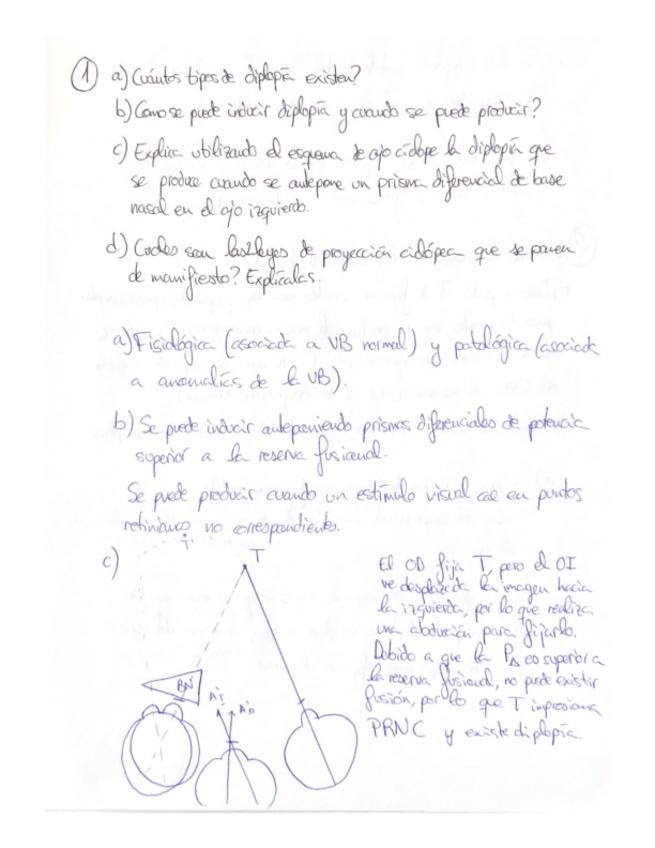 1 a) Cuántos tipos de diplopía existen?
b) Como se puede inducir diplopía y cuando se puede producir?
c) Explica utilizando el esquema de ojo cíclope la diplopía que
se produce cuando se antepone un prisma diferencial de base
nasal en el ojo izquierdo.
d) Cuales son las leyes de proyección ciclópea que se ponen
de manifiesto? Explícalas.
a) Fisiológica (asociada a VB normal) y patológica (asociada
a anomalías de la VB).
b) Se puede inducir anteponiendo prismas diferenciales de potencia
superior a la reserva fusional.
Se puede producir cuando un estímulo visual cae en puntos
retinianos no correspondientes.
c)
T'
T
BN
A'I
A'D
El OD fija T, pero el OI
ve desplazada la imagen hacia
la izquierda, por lo que realiza
una abducción para fijarlo.
Debido a que la P∆ es superior a
la reserva fusional, no puede existir
fusión, por lo que T impresiona
PRNC y existe diplopía.